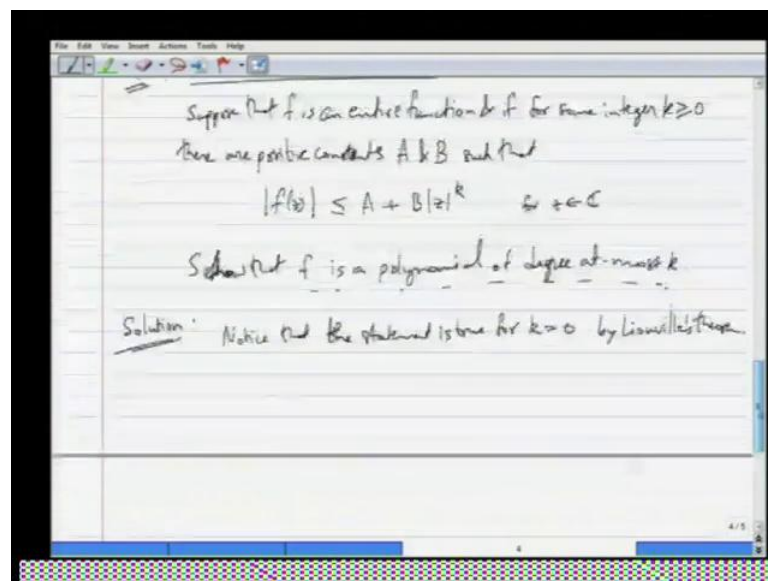 File Edit View Insert Actions Tools Help
Suppose that f is an entire function & if for some integer k ≥ 0
there are positive constants A & B such that
|f(z)| ≤ A + B|z|^k for z ∈ ℂ
Show that f is a polynomial of degree at-most k
Solution: Notice that the statement is true for k = 0 by Liouville's theorem.
4/5
4